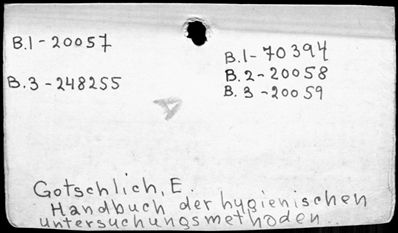 B.1-20057
B.3-248255
B.1-70394
B.2-20058
B.3-20059
Gotschlich, E.
Handbuch der hygienischen
untersuchungsmethoden.